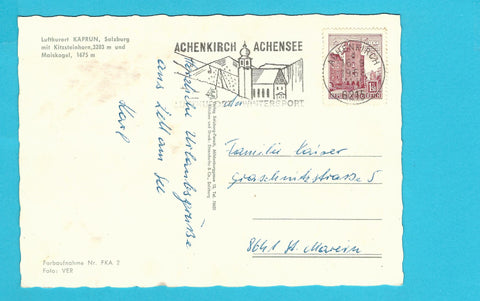 Luftkurort KAPRUN, Salzburg
mit Kitzsteinhorn, 3203 m und
Maiskogel, 1675 m
ACHENKIRCH ACHENSEE
WINTERSPORT
ACHENKIRCH
6215
An
Familie Kaiser
5
8641 St. Marein
Herzliche Urlaubsgrüße
aus Zell am See
Karl
Farbaufnahme Nr. FKA 2
Foto: VER